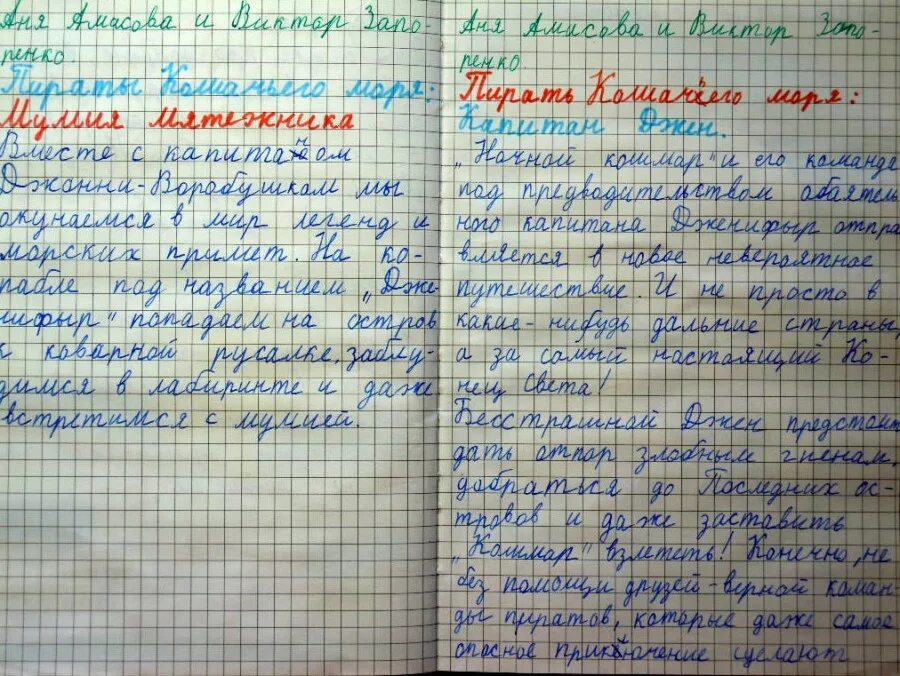 Аня Амасова и Виктор Запо-
ренко.
Пираты Кошачьего моря:
Мумия мятежника
Вместе с капитаном
Джонни-Воробушком мы
окунаемся в мир легенд и
морских примет. На ко-
рабле под названием „Дже-
нифыр" попадаем на остров
к коварной русалке, заблу-
димся в лабиринте и даже
встретимся с мумией.
Аня Амасова и Виктор Запо-
ренко
Пираты Кошачьего моря:
Капитан Джен.
„Ночной кошмар" и его команде
под предводительством обаятель
ного капитана Дженифыр отпра
вляется в новое невероятное
путешествие. И не просто в
какие-нибудь дальние страны,
а за самый настоящий Ко-
нец Света!
Бесстрашной Джен предстоит
дать отпор злобным гиенам,
добраться до Последних ос-
тровов и даже заставить
„Кошмар" взлететь! Конечно, не
без помощи друзей-верной коман-
ды пиратов, которые даже самое
опасное приключение сделают